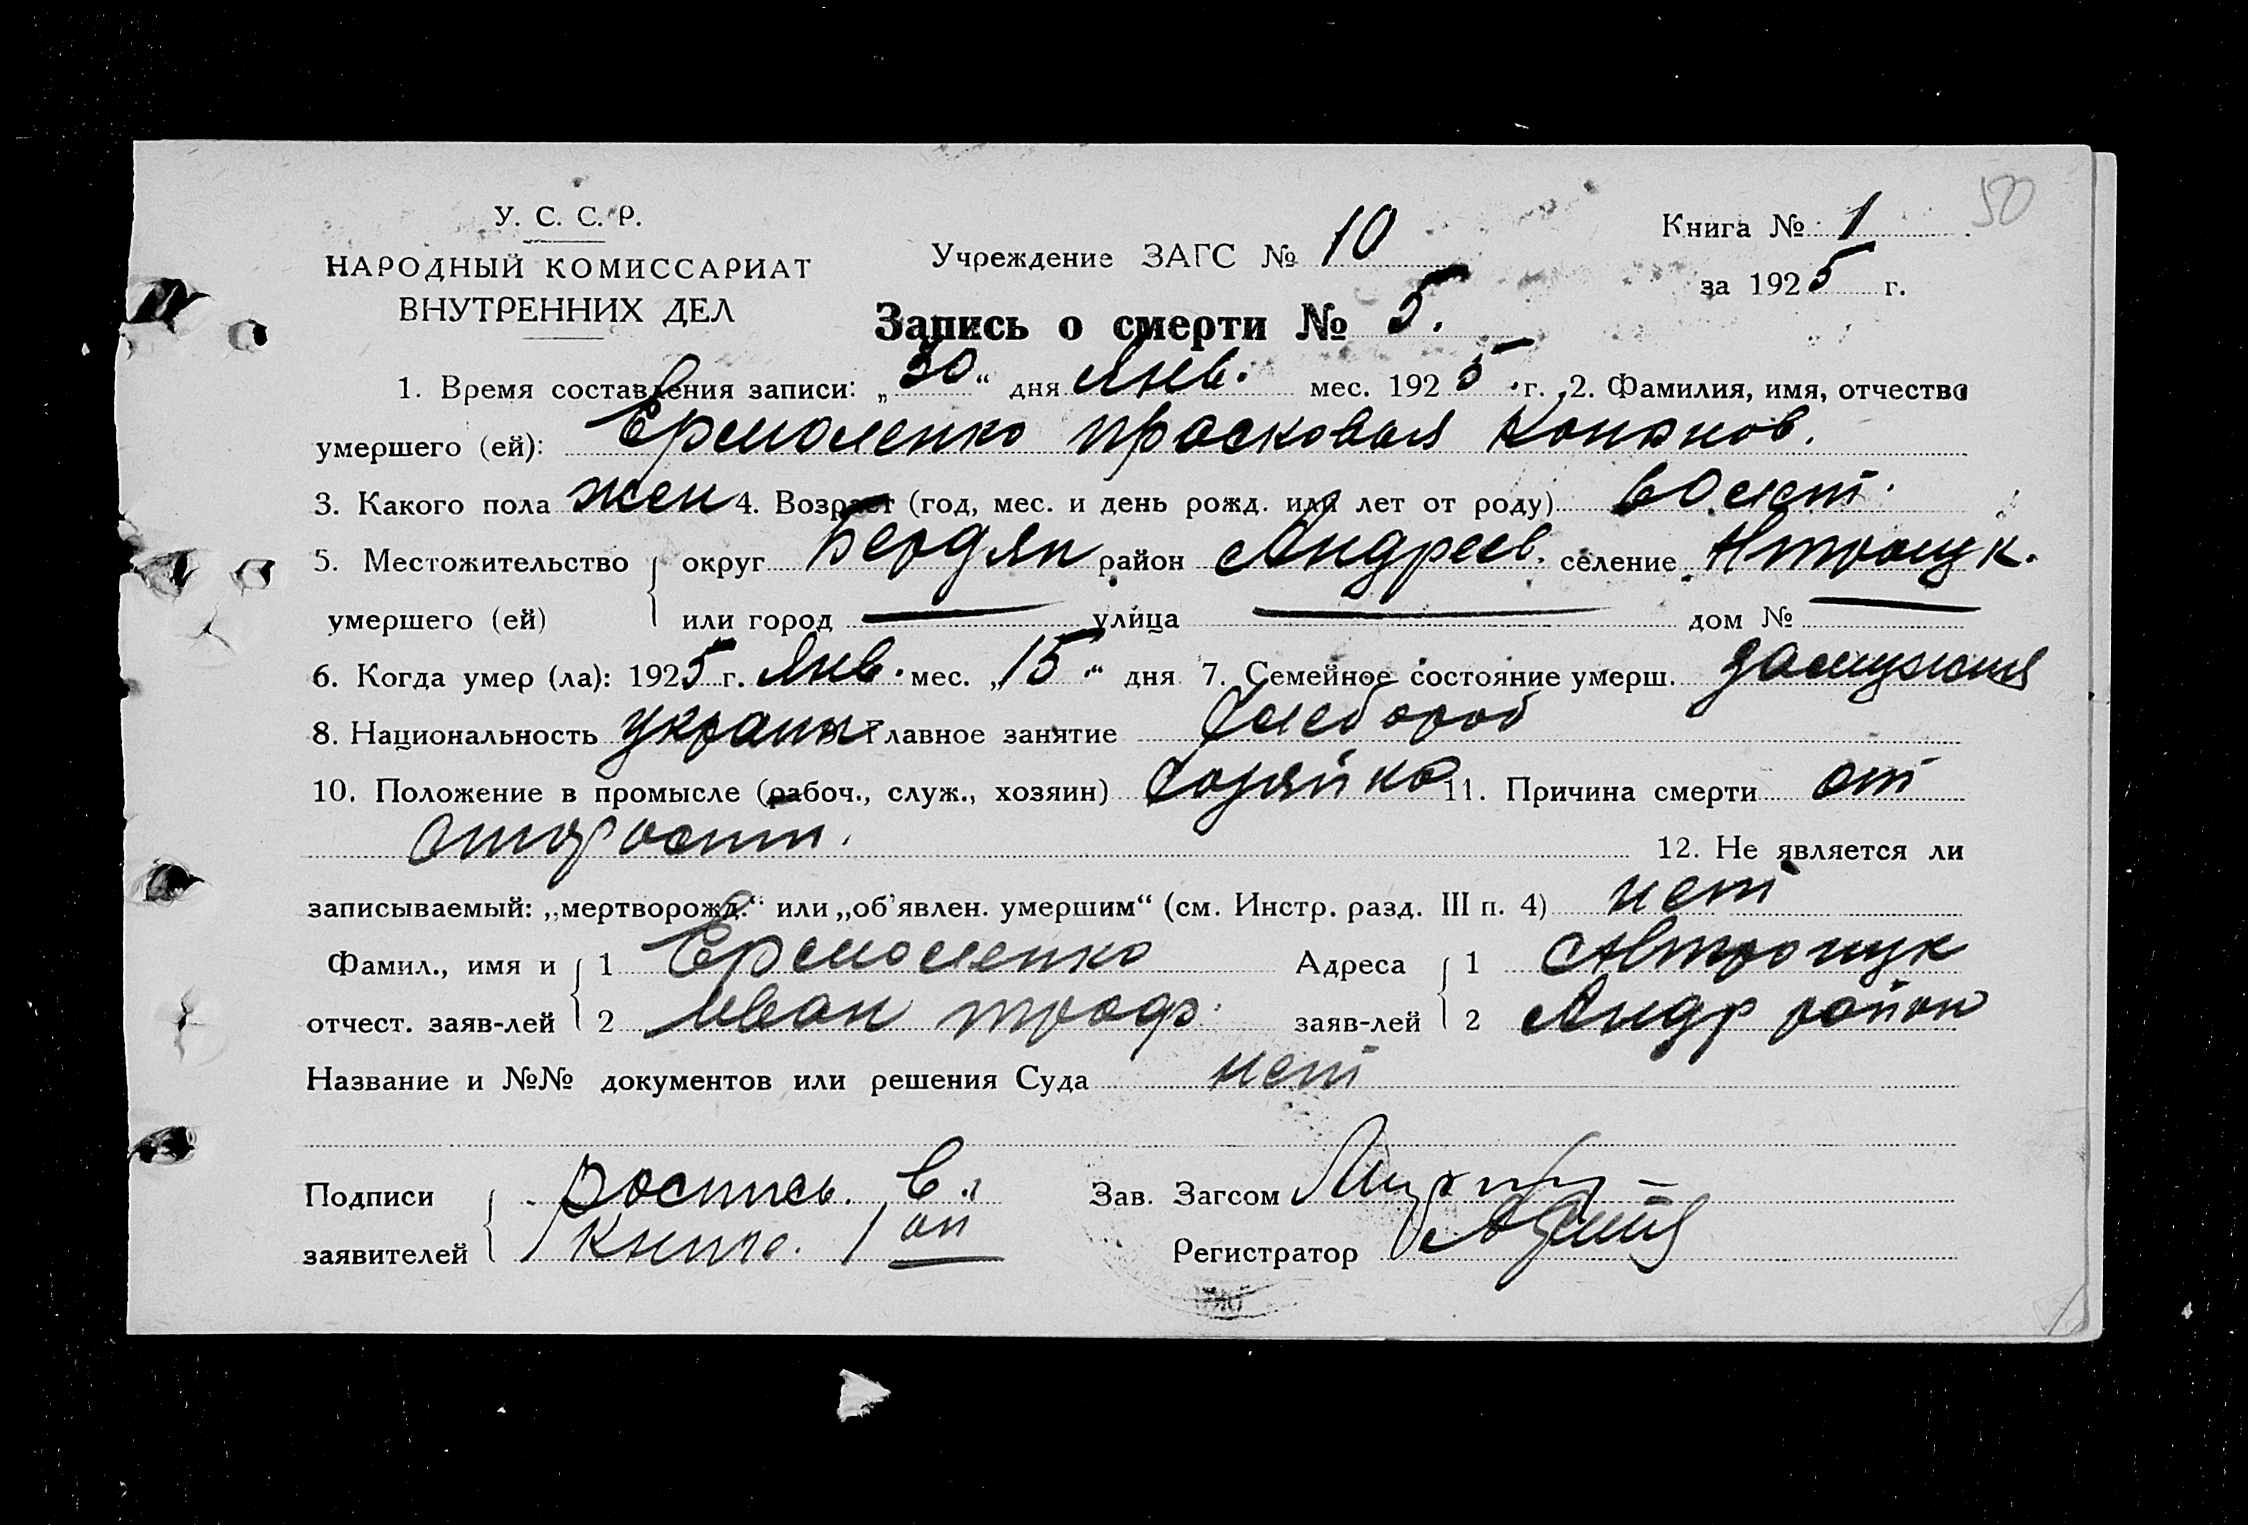 50
У. С. С. Р.
НАРОДНЫЙ КОМИССАРИАТ
ВНУТРЕННИХ ДЕЛ
Учреждение ЗАГС № 10
Книга № 1
за 1925 г.
Запись о смерти № 5.
1. Время составления записи: „30“ дня Янв. мес. 1925 г. 2. Фамилия, имя, отчество
умершего (ей): Ермоленко Прасковая Конанов.
3. Какого пола жен 4. Возраст (год, мес. и день рожд. или лет от роду) 60 лет.
5. Местожительство округ Бердян район Андреев. селение
умершего (ей) или город — улица — дом № —
6. Когда умер (ла): 1925 г. Янв. мес. „15“ дня 7. Семейное состояние умерш. замужняя
8. Национальность Главное занятие Хлебороб
10. Положение в промысле (рабоч., служ., хозяин) Хозяйка 11. Причина смерти от
старости. 12. Не является ли
записываемый: „мертворожд.“ или „об'явлен. умершим“ (см. Инстр. разд. III п. 4) нет
Фамил., имя и 1 Ермоленко Адреса 1
отчест. заяв-лей 2 Иван Троф. заяв-лей 2 Андр район
Название и №№ документов или решения Суда нет
Подписи роспись в. Зав. Загсом
заявителей книге. Регистратор